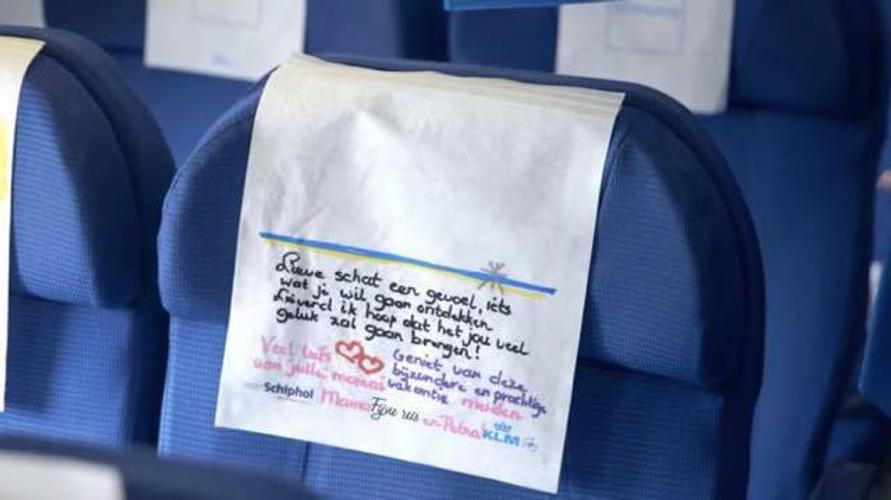 Lieve schat een gevoel, iets
wat je wil gaan ontdekken
Lieverd ik hoop dat het jou veel
geluk zal gaan brengen!
Veel liefs
van jullie mama's
Mama
en Petra
Geniet van deze
bijzondere en prachtige
vakantie meiden
Schiphol
Fijne reis
KLM